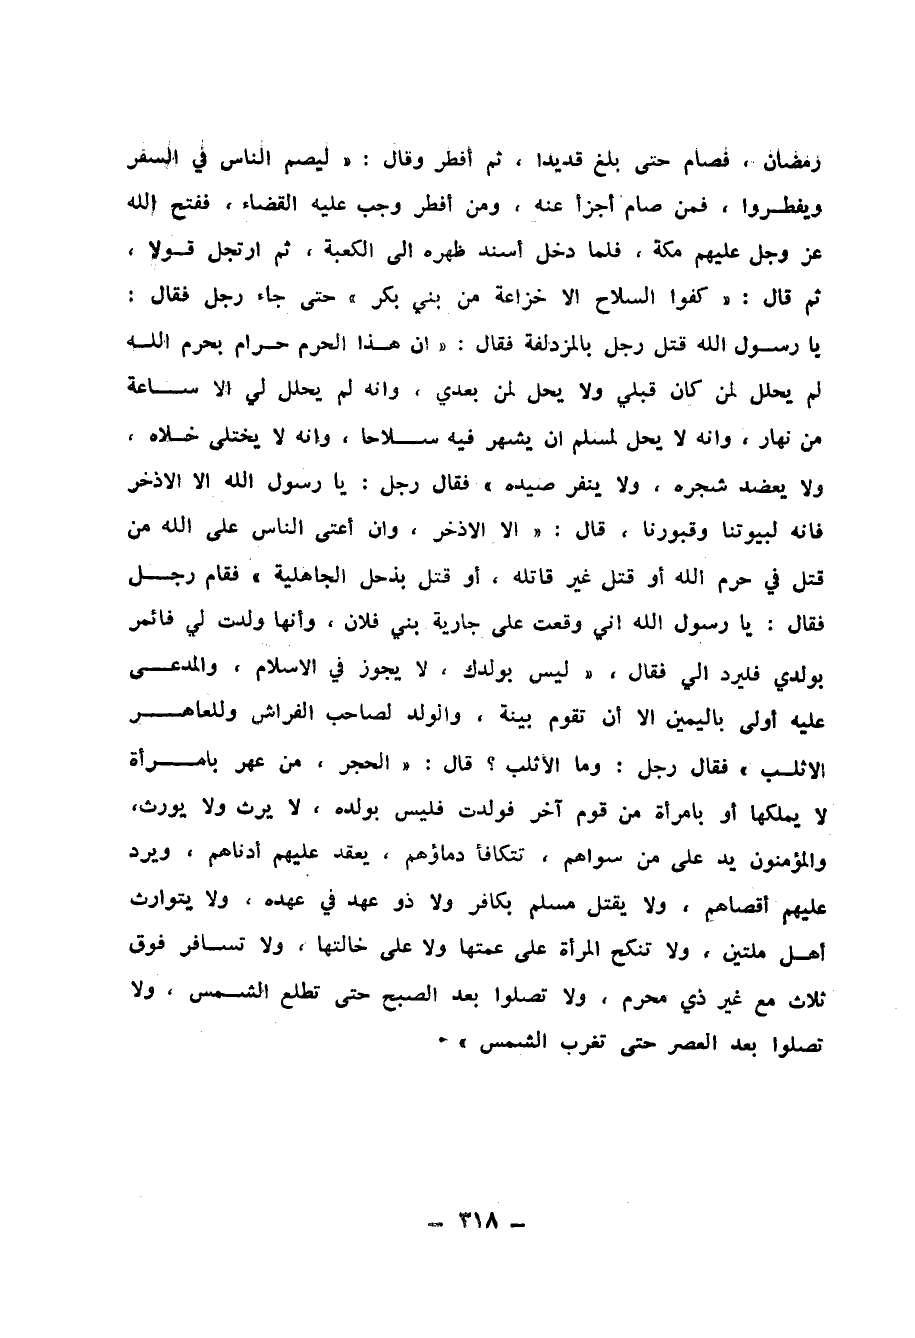 رمضان ، فصام حتى بلغ قديدا ، ثم أفطر وقال : « ليصم الناس في السفر
ويفطروا ، فمن صام أجزأ عنه ، ومن أفطر وجب عليه القضاء ، ففتح الله
عز وجل عليهم مكة ، فلما دخل أسند ظهره الى الكعبة ، ثم ارتجل قولا ،
ثم قال : « كفوا السلاح الا خزاعة من بني بكر » حتى جاء رجل فقال :
يا رسول الله قتل رجل بالمزدلفة فقال : « ان هذا الحرم حرام بحرم الله
لم يحلل لمن كان قبلي ولا يحل لمن بعدي ، وانه لم يحلل لي الا ساعة
من نهار ، وانه لا يحل لمسلم ان يشهر فيه سلاحا ، وانه لا يختلى خلاه ،
ولا يعضد شجره ، ولا ينفر صيده » فقال رجل : يا رسول الله الا الاذخر
فانه لبيوتنا وقبورنا ، قال : « الا الاذخر ، وان أعتى الناس على الله من
قتل في حرم الله أو قتل غير قاتله ، أو قتل بذحل الجاهلية » فقام رجل
فقال : يا رسول الله اني وقعت على جارية بني فلان ، وأنها ولدت لي فائمر
بولدي فليرد الي فقال ، « ليس بولدك ، لا يجوز في الاسلام ، والمدعى
عليه أولى باليمين الا أن تقوم بينة ، والولد لصاحب الفراش وللعاهر
الاثلب » فقال رجل : وما الأثلب ؟ قال : « الحجر ، من عهر بامرأة
لا يملكها أو بامرأة من قوم آخر فولدت فليس بولده ، لا يرث ولا يورث،
والمؤمنون يد على من سواهم ، تتكافأ دماؤهم ، يعقد عليهم أدناهم ، ويرد
عليهم أقصاهم ، ولا يقتل مسلم بكافر ولا ذو عهد في عهده ، ولا يتوارث
أهل ملتين ، ولا تنكح المرأة على عمتها ولا على خالتها ، ولا تسافر فوق
ثلاث مع غير ذي محرم ، ولا تصلوا بعد الصبح حتى تطلع الشمس ، ولا
تصلوا بعد العصر حتى تغرب الشمس » ٠
– ٣١٨ –